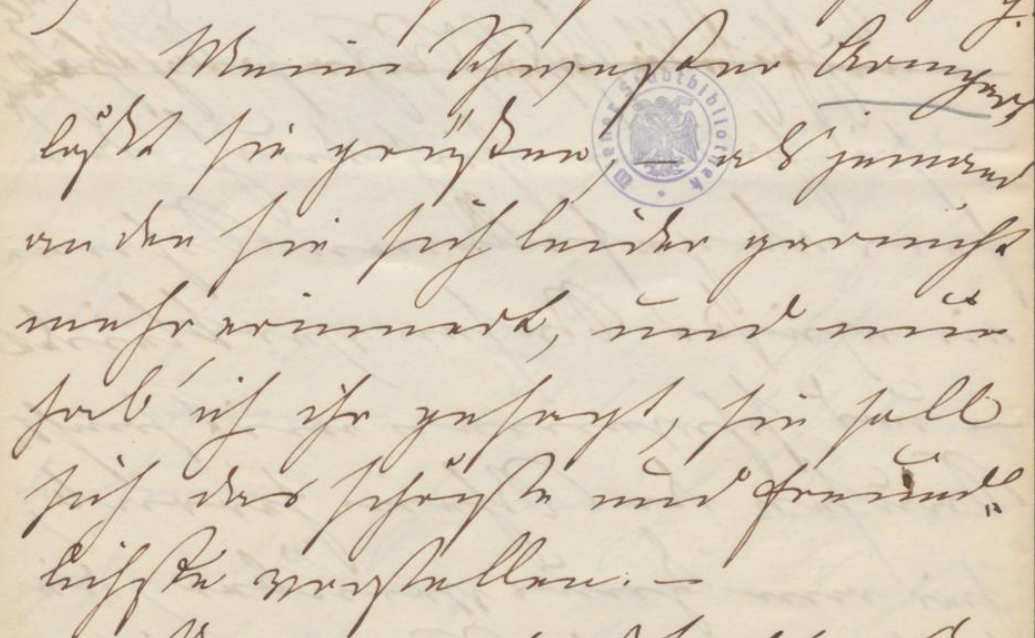 Meine Schwester Armgart
läßt sie grüßen, — als jemand
an den sie sich leider garnicht
mehr erinnert, und nun
hab' ich ihr gesagt, sie soll
sich das schönste und freund„
lichste vorstellen. —
Wiener Stadtbibliothek